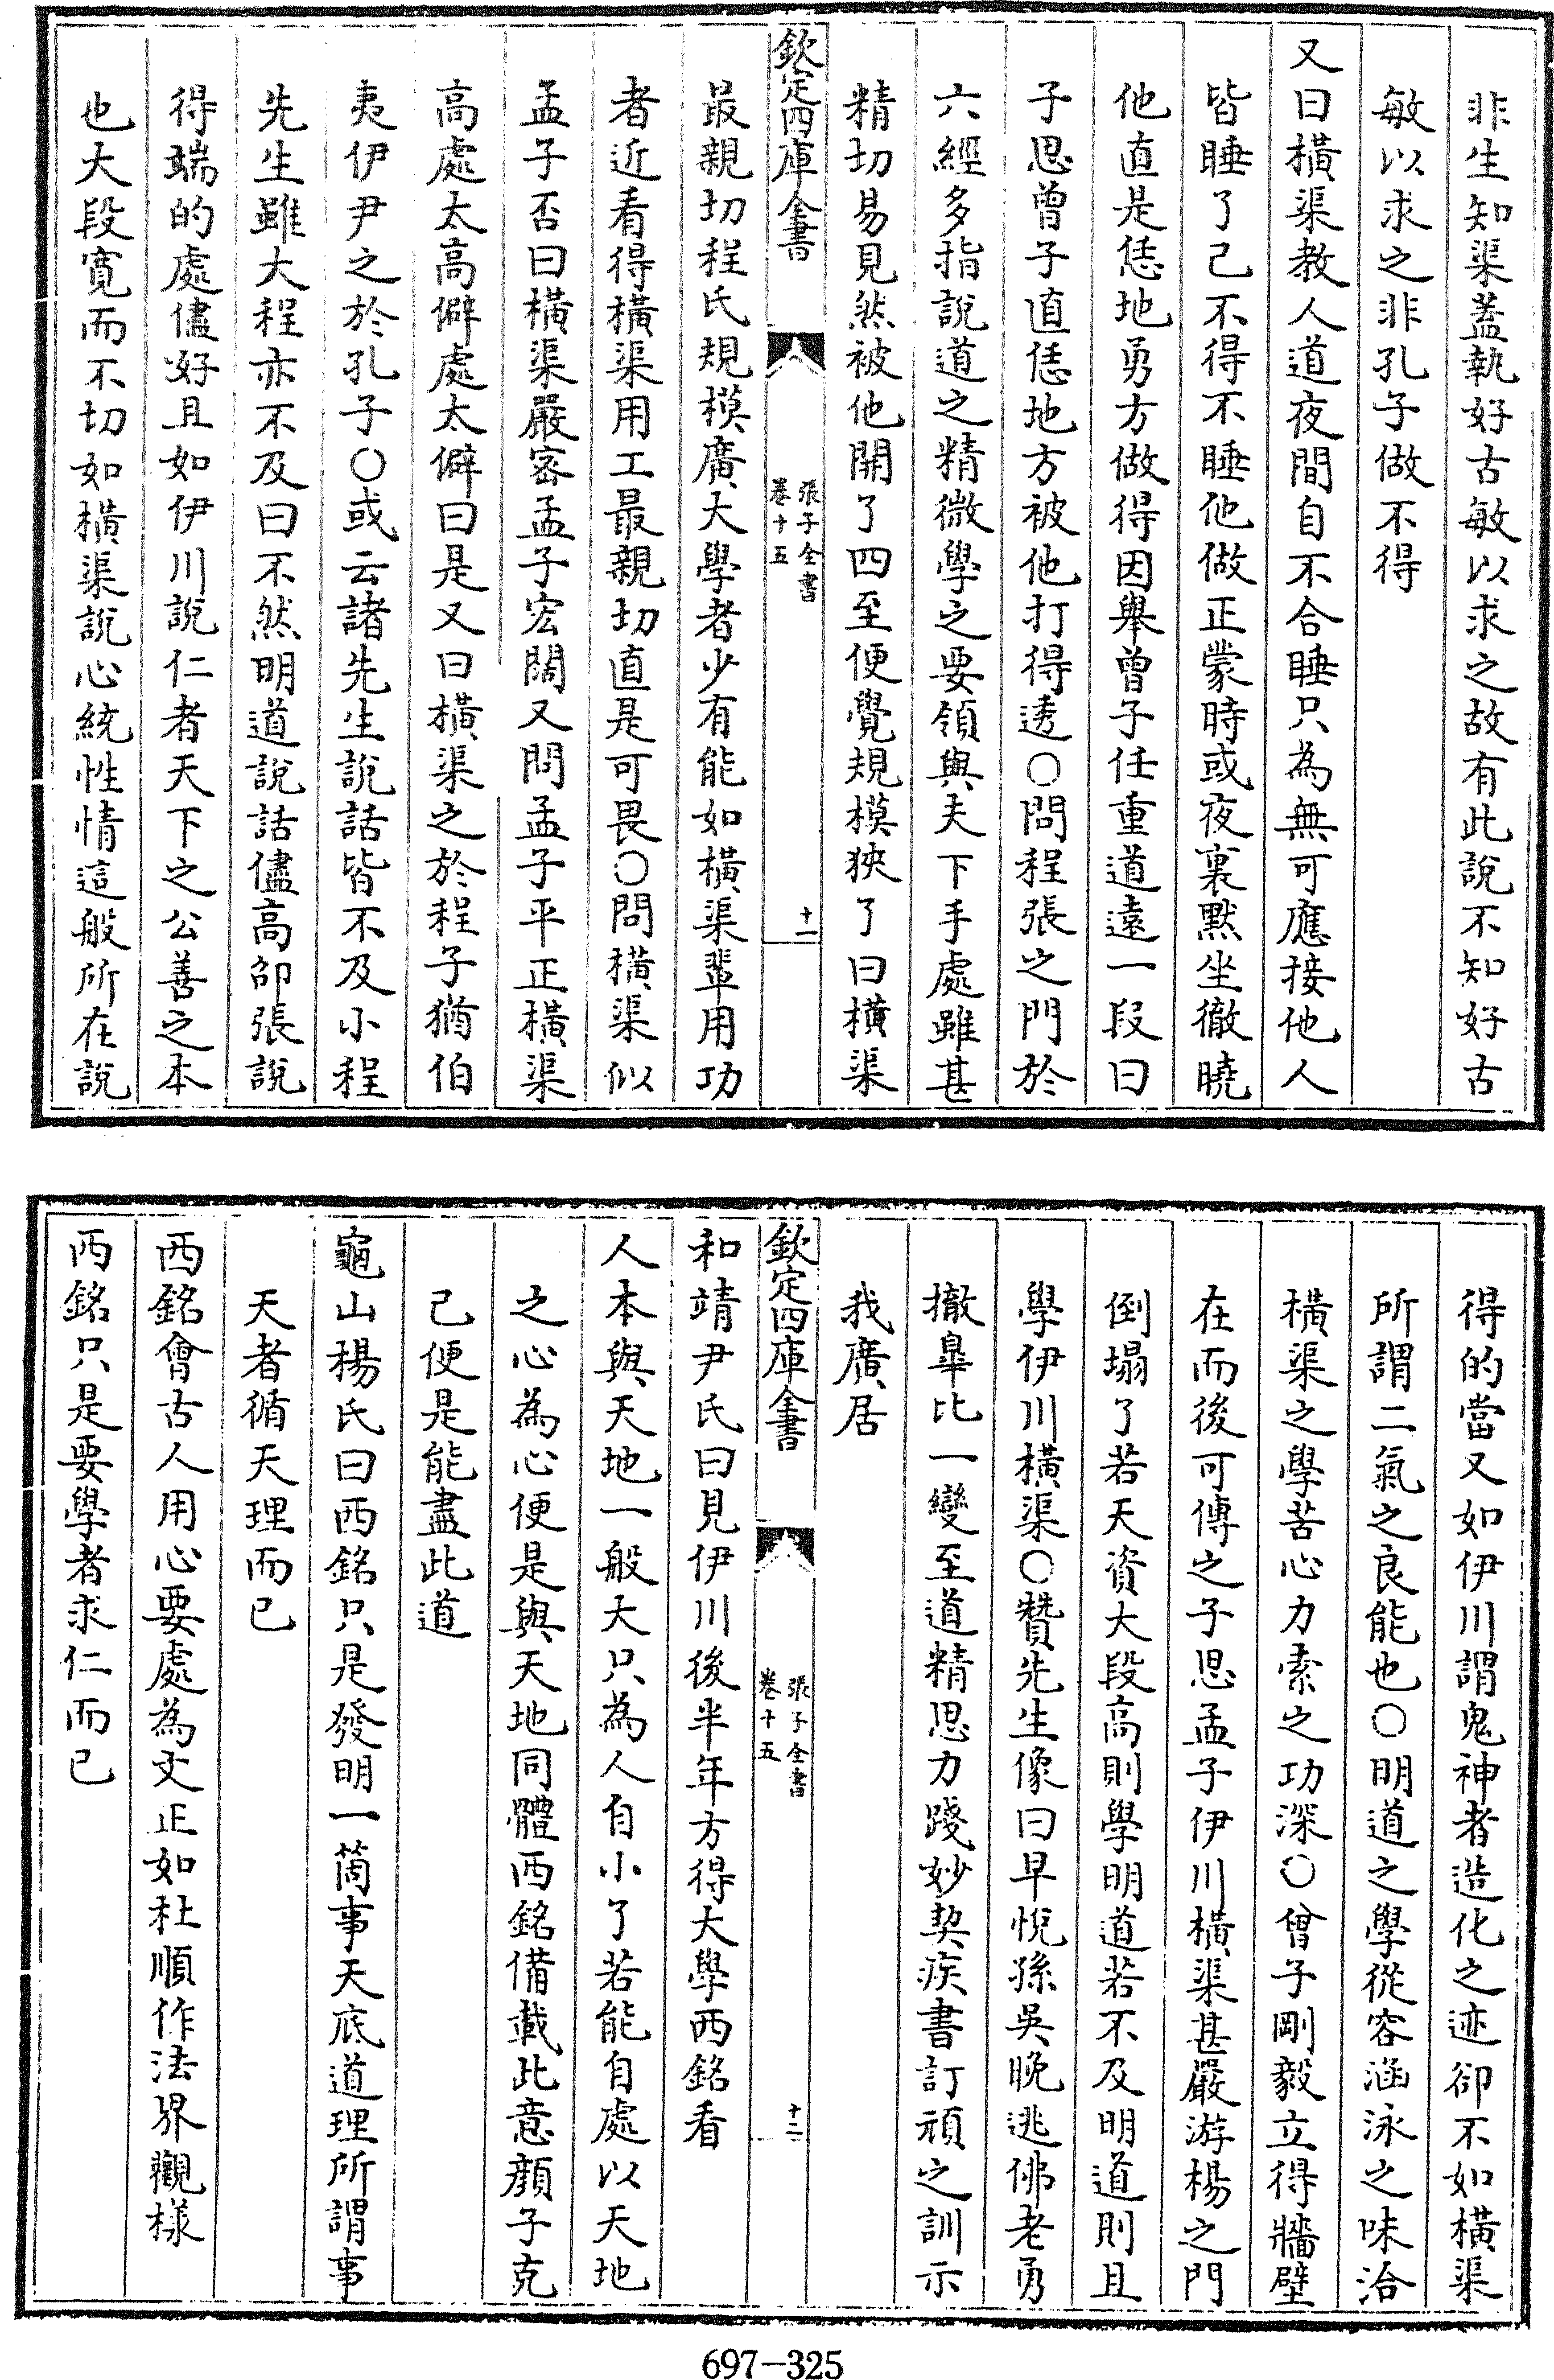 非生知渠蓋執好古敏以求之故有此說不知好古
敏以求之非孔子做不得
又曰橫渠教人道夜間自不合睡只為無可應接他人
皆睡了己不得不睡他做正蒙時或夜裏默坐徹曉
他直是恁地勇方做得因舉曾子任重道遠一段曰
子思曾子直恁地方被他打得透○問程張之門於
六經多指說道之精微學之要領與夫下手處雖甚
精切易見然被他開了四至便覺規模狹了曰橫渠
欽定四庫全書
張子全書
卷十五
十一
最親切程氏規模廣大學者少有能如橫渠輩用功
者近看得橫渠用工最親切直是可畏○問橫渠似
孟子否曰橫渠嚴密孟子宏闊又問孟子平正橫渠
高處太高僻處太僻曰是又曰橫渠之於程子猶伯
夷伊尹之於孔子○或云諸先生說話皆不及小程
先生雖大程亦不及曰不然明道說話儘高邵張說
得端的處儘好且如伊川說仁者天下之公善之本
也大段寬而不切如橫渠說心統性情這般所在說
得的當又如伊川謂鬼神者造化之迹卻不如橫渠
所謂二氣之良能也○明道之學從容涵泳之味洽
橫渠之學苦心力索之功深○曾子剛毅立得牆壁
在而後可傳之子思孟子伊川橫渠甚嚴游楊之門
倒塌了若天資大段高則學明道若不及明道則且
學伊川橫渠○贊先生像曰早悅孫吳晚逃佛老勇
撤臯比一變至道精思力踐妙契疾書訂頑之訓示
我廣居
欽定四庫全書
張子全書
卷十五
十二
和靖尹氏曰見伊川後半年方得大學西銘看
人本與天地一般大只為人自小了若能自處以天地
之心為心便是與天地同體西銘備載此意顏子克
己便是能盡此道
龜山楊氏曰西銘只是發明一箇事天底道理所謂事
天者循天理而已
西銘會古人用心要處為文正如杜順作法界觀樣
西銘只是要學者求仁而已
697-325